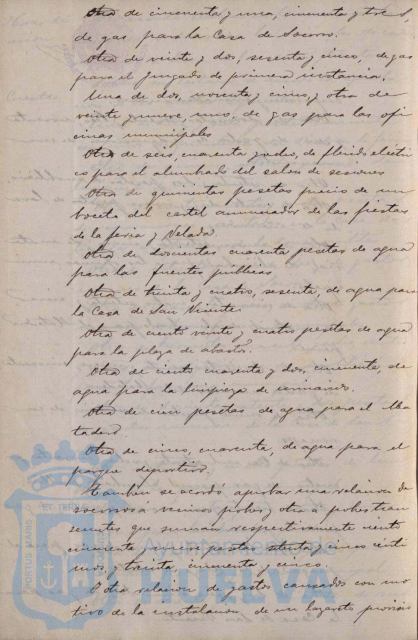 Otra de cincuenta y una, cincuenta y tres
de gas para la Casa de Socorro.
Otra de veinte y dos, sesenta y cinco, de gas
para el Juzgado de primera instancia.
Una de dos, noventa y cinco, y otra de
veinte y nueve, uno, de gas para las ofi
cinas municipales
Otra de seis, cuarenta y ocho, de fluido eléctri
co para el alumbrado del salon de sesiones
Otra de quinientas pesetas precio de un
boceto del cartel anunciador de las fiestas
de la feria y Velada.
Otra de doscientas cuarenta pesetas de agua
para las fuentes publicas
Otra de treinta y cuatro, sesenta, de agua para
la Casa de San Vicente
Otra de ciento veinte y cuatro pesetas de agua
para la plaza de abastos.
Otra de ciento cuarenta y dos, cincuenta, de
agua para la limpieza de urinarios.
Otra de cien pesetas de agua para el Ma
tadero
Otra de cinco, cuarenta, de agua para el
parque deportivo.
Tambien se acordó aprobar una relacion de
socorros a vecinos pobres y otra a pobres tran
seuntes que suman respectivamente ciento
cincuenta y nueve pesetas setenta y cinco cénti
mos, y treinta, cincuenta y cinco.
Y otra relacion de gastos causados con mo
tivo de la instalacion de un lazareto provisio
PORTUS MARIS
ET TERRAE
Ayuntamiento de
HUELVA